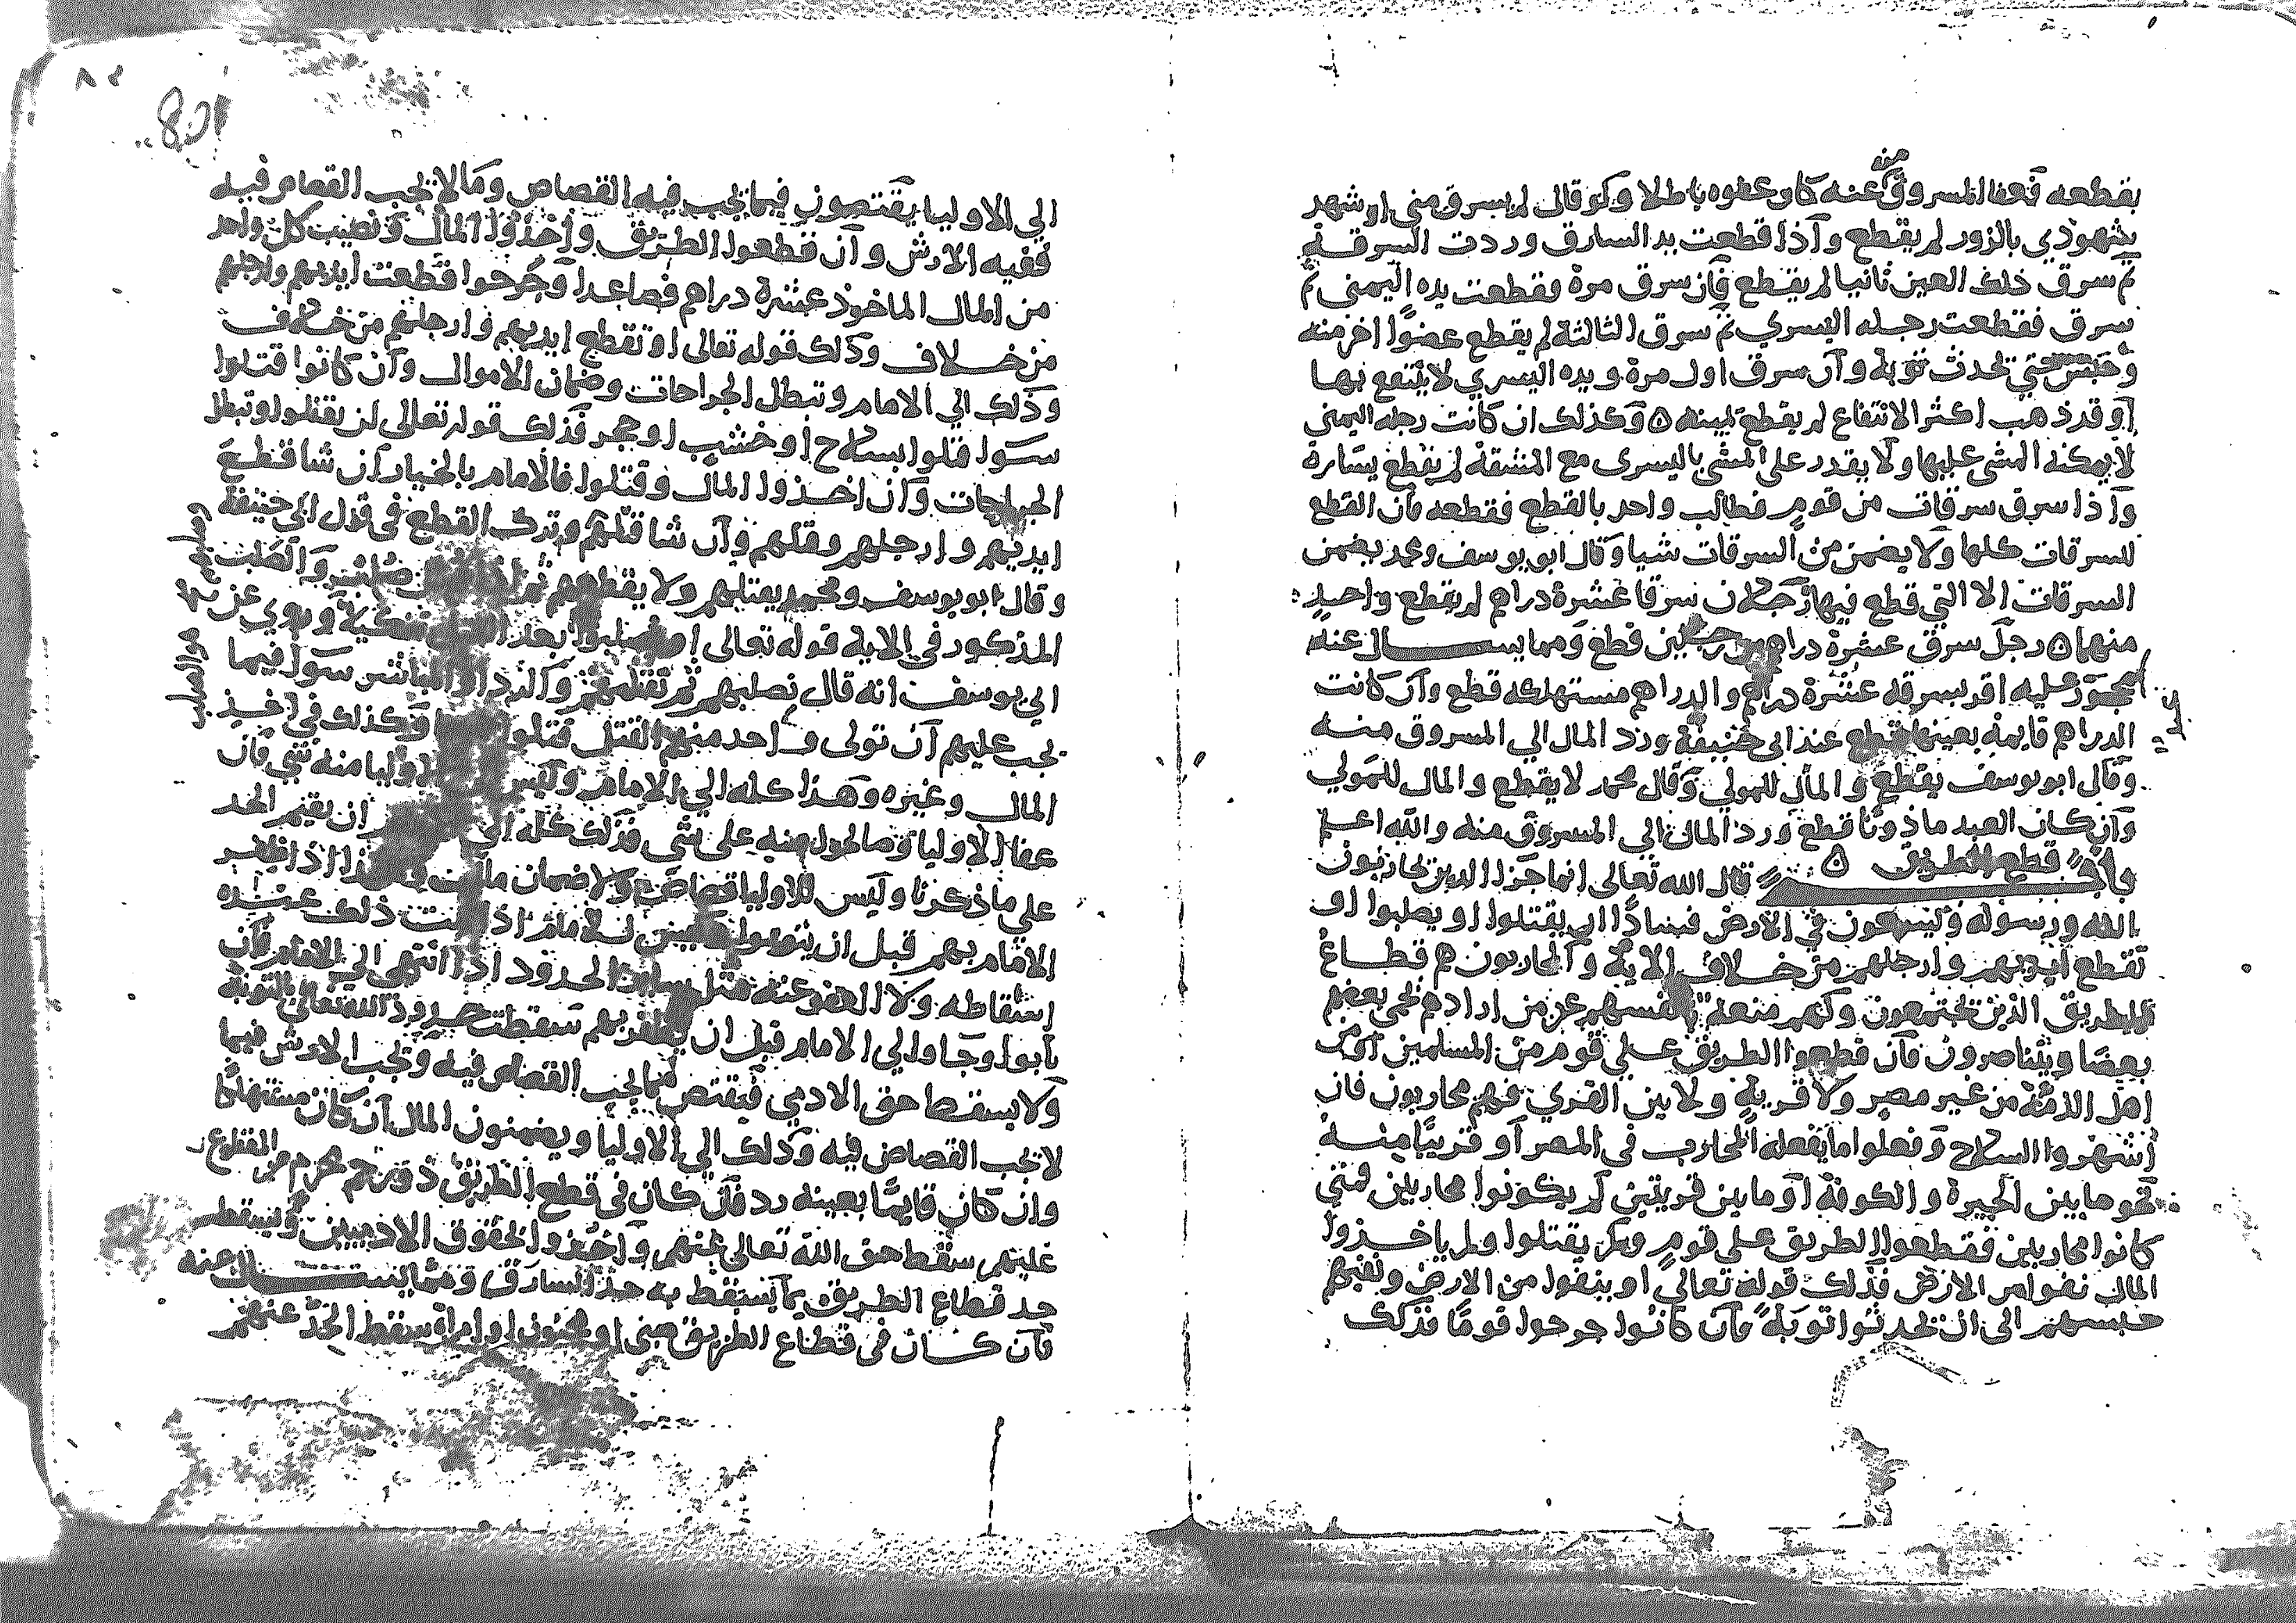 بقطعه فعفا المسروق منه عنه كان عفوه باطلا ولو قال لم يسرق مني او شهد
شهودي بالزور لم يقطع واذا قطعت يد السارق وردت السرقة
ثم سرق ذلك العين ثانيا لم يقطع فان سرق مرة فقطعت يده اليمنى ثم
سرق فقطعت رجله اليسري ثم سرق الثالثة لم يقطع عضوا اخر منه
وحبس حتي تحدث توبة وان سرق اول مرة ويده اليسري لا ينتفع بها
او قد ذهب اكثر الانتفاع لم يقطع يمينه ٥ وكذلك ان كانت رجله اليمنى
لا يمكنه المشى عليها ولا يقدر على المشى باليسرى مع المشقة لم يقطع يساره
واذا سرق سرقات من قوم فطالب واحد بالقطع فقطعه فان القطع
للسرقات كلها ولا يضمن من السرقات شيا وقال ابو يوسف ومحمد يضمن
السرقات الا التي قطع فيها رجلان سرقا عشرة دراهم لم يقطع واحد
منها ٥ رجل سرق عشرة دراهم من رجلين قطع ومما يسال عنه
محجوز عليه اقر بسرقه عشرة دراهم والدراهم مستهلكه قطع وان كانت
الدراهم قايمة بعينها قطع عند ابى حنيفة ورد المال الي المسروق منه
وقال ابو يوسف يقطع والمال للمولي وقال محمد لا يقطع والمال للمولي
وان كان العبد ماذونا قطع ورد المال الي المسروق منه والله اعلم
باب قطع الطريق ٥ قال الله تعالى انما جزا الذين يحاربون
الله ورسوله ويسعون في الارض فسادا ان يقتلوا او يصلبوا او
تقطع ايديهم وارجلهم من خلاف الاية والمحاربون هم قطاع
الطريق الذين يجتمعون ولهم منعة بانفسهم عن من ارادهم يحمي بعضهم
بعضا ويتناصرون فان قطعوا الطريق علي قوم من المسلمين او من
اهل الذمة من غير مصر ولا قرية ولا بين القري فهم محاربون فان
اشهروا السلاح وفعلوا ما يفعله المحارب في المصر او قريبا منه
نحو ما بين الحيرة والكوفة او ما بين قريتين لم يكونوا محاربين فمتي
كانوا محاربين فقطعوا الطريق على قوم ولم يقتلوا ولم ياخذوا
المال نفوا من الارض فذلك قوله تعالى او ينفوا من الارض ونفيهم
حبسهم الى ان يحدثوا توبة فان كانوا جرحوا قوما فذلك
الي الاوليا يقتصون فيما يجب فيه القصاص وما لا يجب القصاص فيه
ففيه الارش وان قطعوا الطريق واخذوا المال ونصيب كل واحد
من المال الماخوذ عشرة دراهم فصاعدا وجرحوا قطعت ايديهم وارجلهم
من خلاف وذلك قوله تعالى او تقطع ايديهم وارجلهم من خلاف
وذلك الي الامام وتبطل الجراحات وضمان الاموال وان كانوا قتلوا
سوا قتلوا بسلاح او خشب او حجر فذلك قوله تعالى ان يقتلوا وتبطل
الجراحات وان اخذوا المال وقتلوا فالامام بالخيار ان شا قطع
ايديهم وارجلهم وقتلهم وان شا قتلهم وترك القطع في قول ابي حنيفة
وقال ابو يوسف ومحمد يقتلهم ولا يقطعهم صلبت والصلب
المذكور في الاية قوله تعالى او يصلبوا بعد وروي عن
ابي يوسف انه قال نصلبهم ثم نقتلهم والرد المباشر سوا فيما
يجب عليهم ان تولى واحد منهم القتل قتلوا وكذلك في اخذ
المال وغيره وهذا كله الي الامام وليس الاوليا منه شي فان
عفا الاوليا وصالحوا منه على شي فذلك كله الي ان يقيم الحد
علي ما ذكرنا وليس للاوليا قصاص ولا ضمان هذا اذا ظفر
الامام بهم قبل ان يتوبوا وليس للامام اذا ثبت ذلك عنده
اسقاطه ولا العفو عنه مثل ساير الحدود اذا انتهى الي الامام فان
تابوا وجاوا الي الامام قبل ان يظفر بهم سقطت حدود الله تعالى بالتوبة
ولا يسقط حق الادمي فيقتص فيما يجب القصاص فيه وتجب الارش فيما
لا تجب القصاص فيه وذلك الي الاوليا ويضمنون المال ان كان مستهلكا
وان كان قايما بعينه رد فان كان في قطع الطريق ذو رحم محرم من المقطوع
عليهم سقط حق الله تعالى عنهم واخذوا لحقوق الادميين ويسقط
حد قطاع الطريق بما يسقط به حد السارق ومما يسال عنه
فان كان في قطاع الطريق صبى او مجنون او امراة سقط الحد عنهم